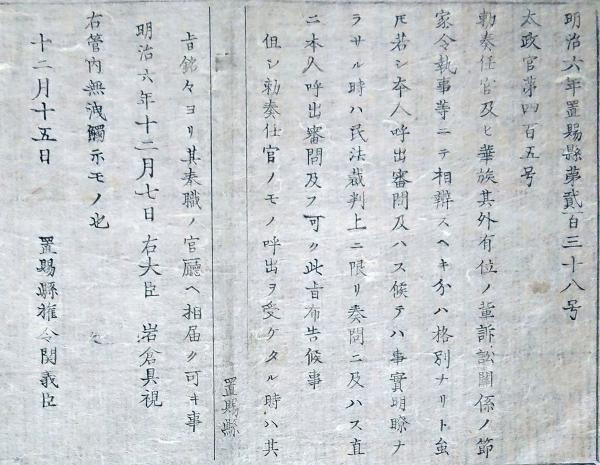 明治六年置賜縣第貳百三十八号
太政官第四百五号
勅奏任官及ヒ華族其外有位ノ輩訴訟關係ノ節
家令執事等ニテ相辨スヘキ分ハ格別ナリト虽
𪜈若シ本人呼出審問及ハス候テハ事實明瞭ナ
ラサル時ハ民法裁判上ニ限リ奏問ニ及ハス直
ニ本人呼出審問及フ可ク此旨布告候事
但シ勅奏任官ノモノ呼出ヲ受ケタル時ハ其
置賜縣
旨銘々ヨリ其奉職ノ官廳ヘ相届ク可キ事
明治六年十二月七日 右大臣 岩倉具視
右管内無洩觸示モノ也
十二月十五日 置賜縣権令関義臣